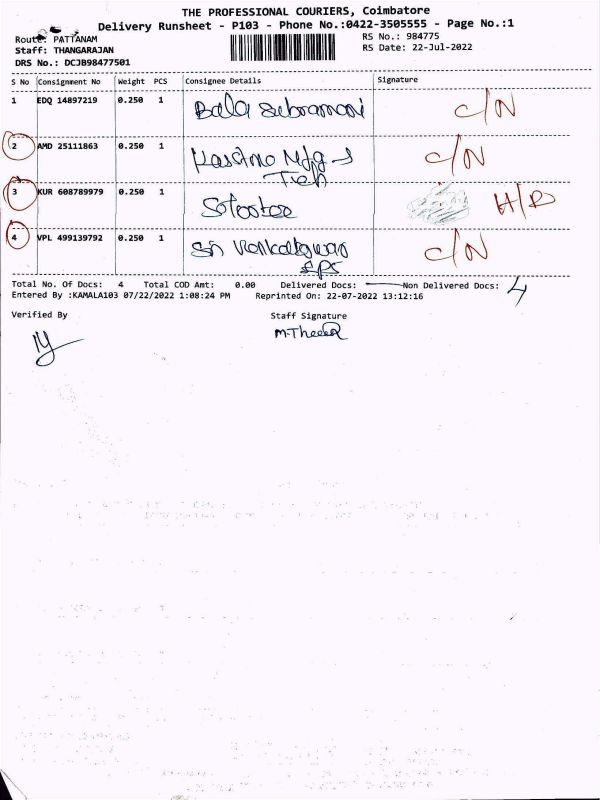 THE PROFESSIONAL COURIERS, Coimbatore
Delivery Runsheet - P103 - Phone No.:0422-3505555 - Page No.:1
Route: PATTANAM
RS No.: 984775
Staff: THANGARAJAN
RS Date: 22-Jul-2022
DRS No.: DCJB98477501
S No Consignment No Weight PCS Consignee Details Signature
1 EDQ 14897219 0.250 1 Bala Subramani C/N
2 AMD 25111863 0.250 1 Mfg C/N
3 KUR 608789979 0.250 1 H/D
4 VPL 499139792 0.250 1 Sri C/N
Total No. Of Docs: 4 Total COD Amt: 0.00 Delivered Docs: — Non Delivered Docs: 4
Entered By :KAMALA103 07/22/2022 1:08:24 PM Reprinted On: 22-07-2022 13:12:16
Verified By Staff Signature